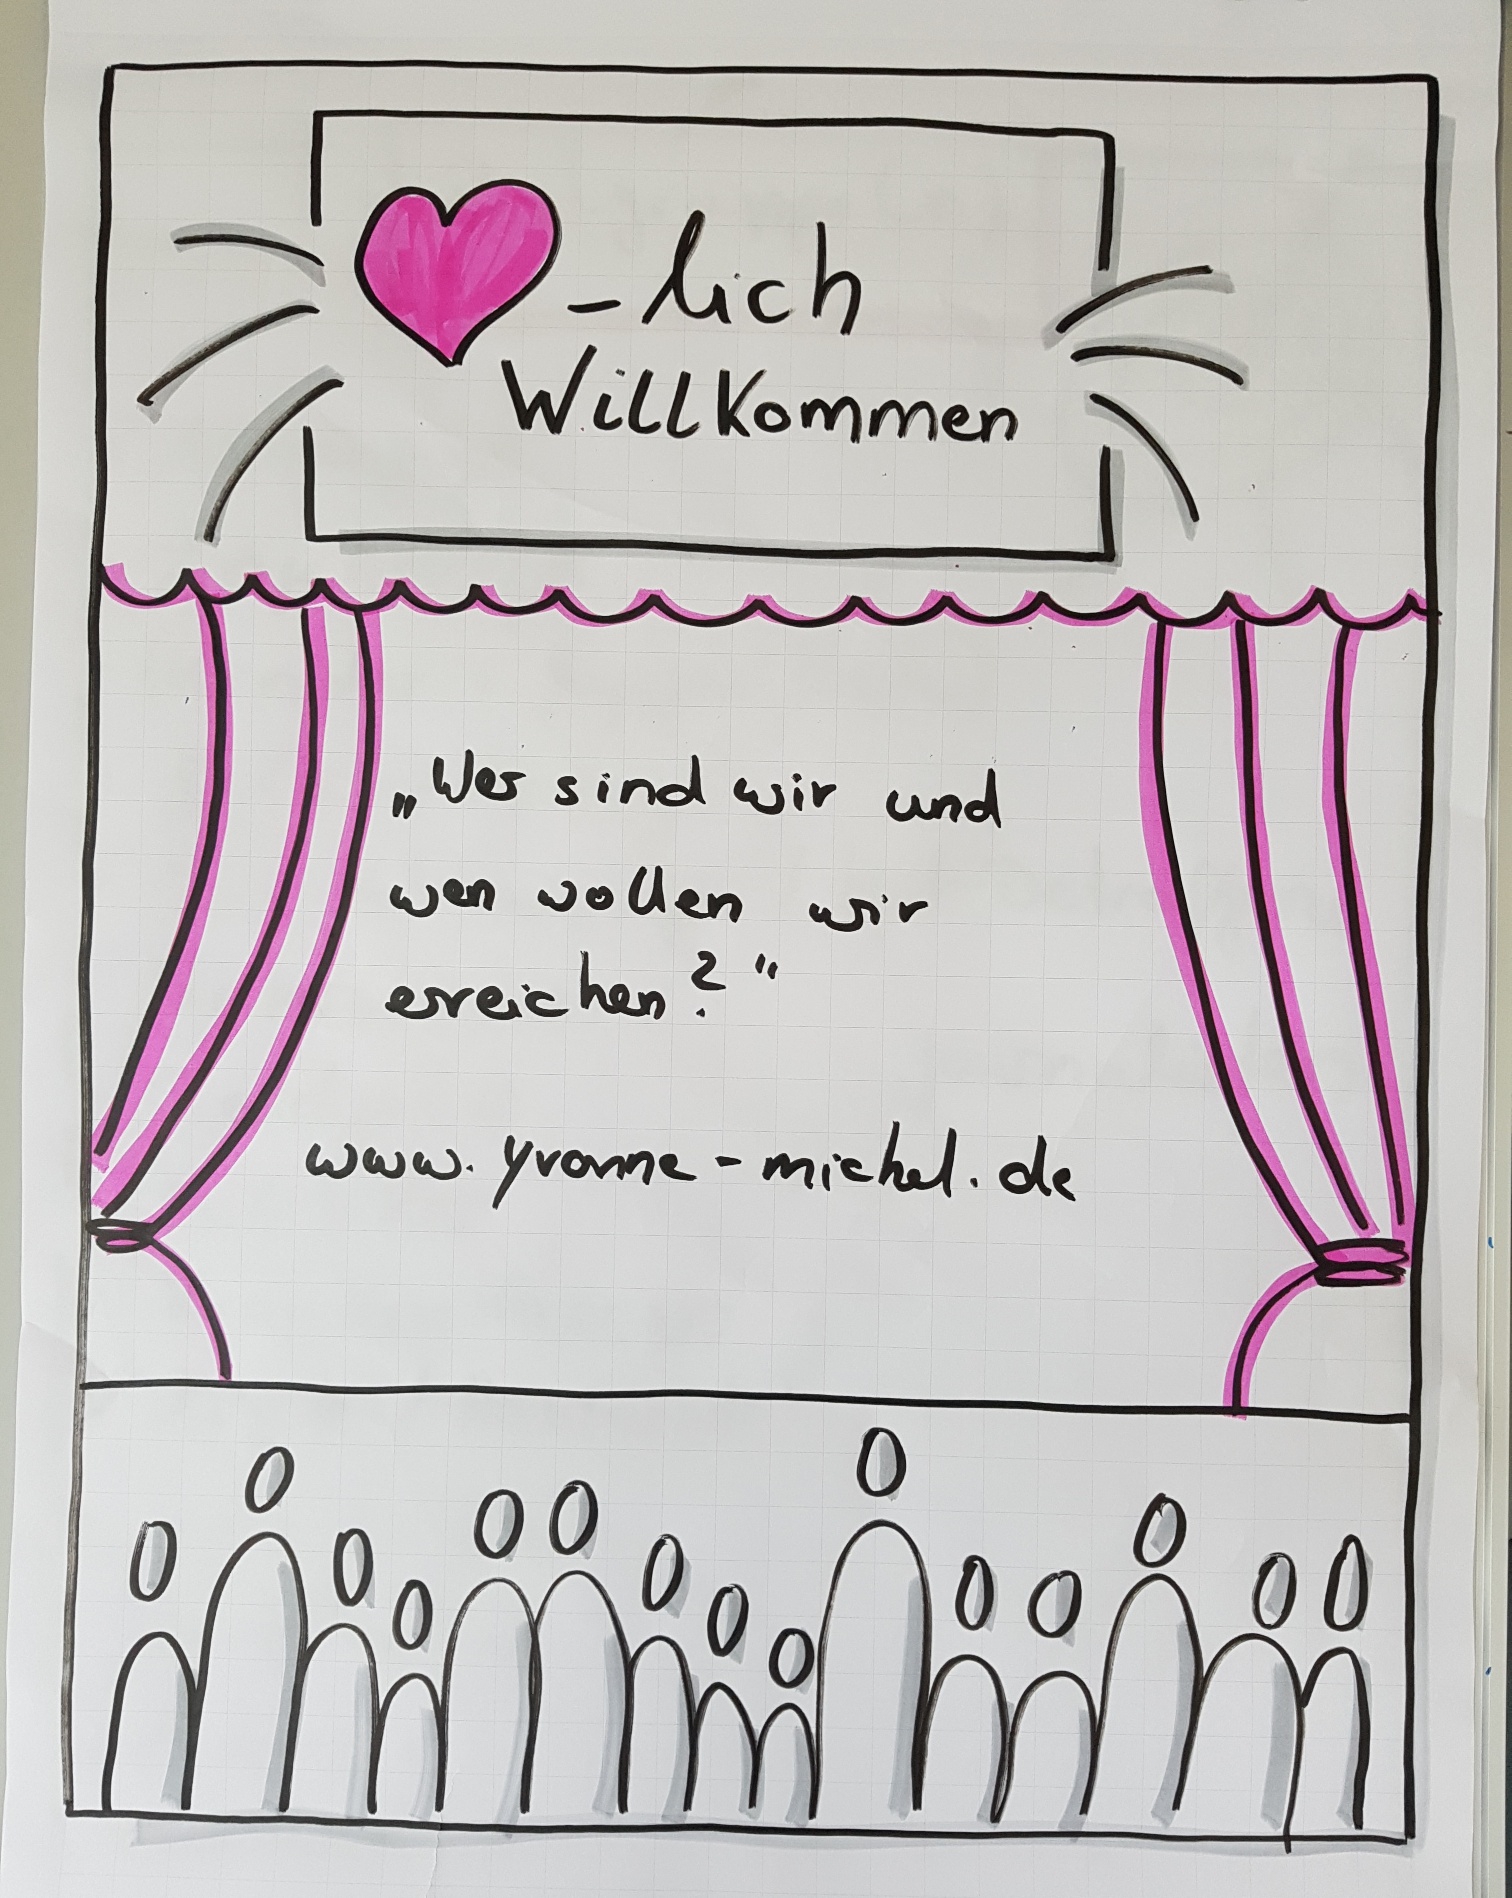 -lich
Willkommen
„Wer sind wir und
wen wollen wir
erreichen?“
www.yvonne-michel.de